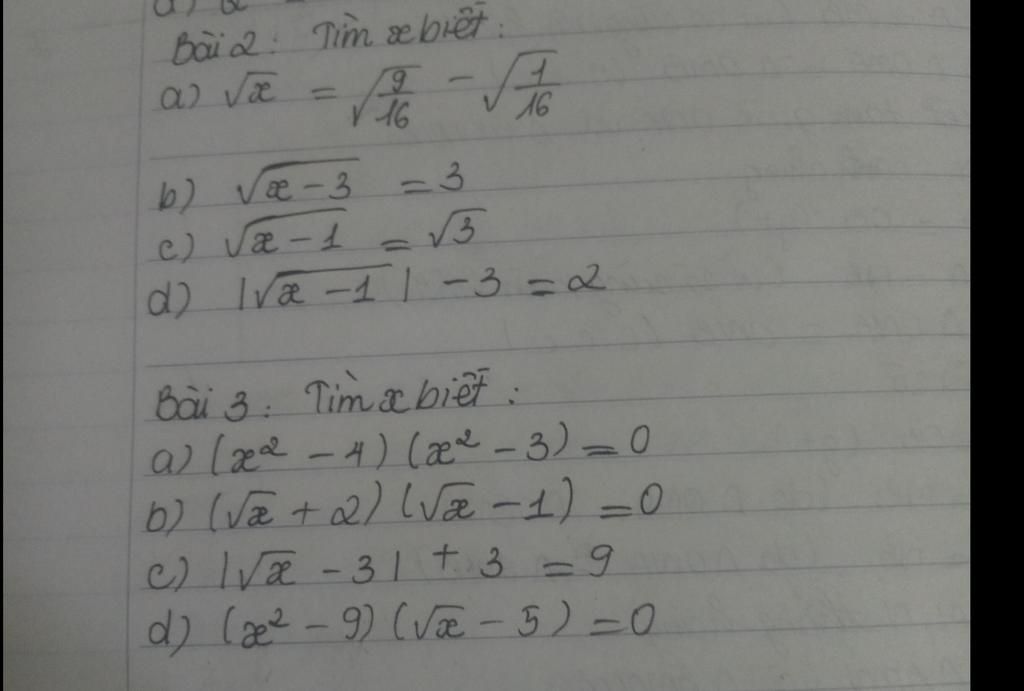 Bài 2: Tìm x biết:
a) √x = √9/16 − √1/16
b) √x−3 = 3
c) √x−1 = √3
d) |√x−1| − 3 = 2
Bài 3: Tìm x biết:
a) (x² − 4) (x² − 3) = 0
b) (√x + 2) (√x − 1) = 0
c) |√x − 3| + 3 = 9
d) (x² − 9) (√x − 5) = 0